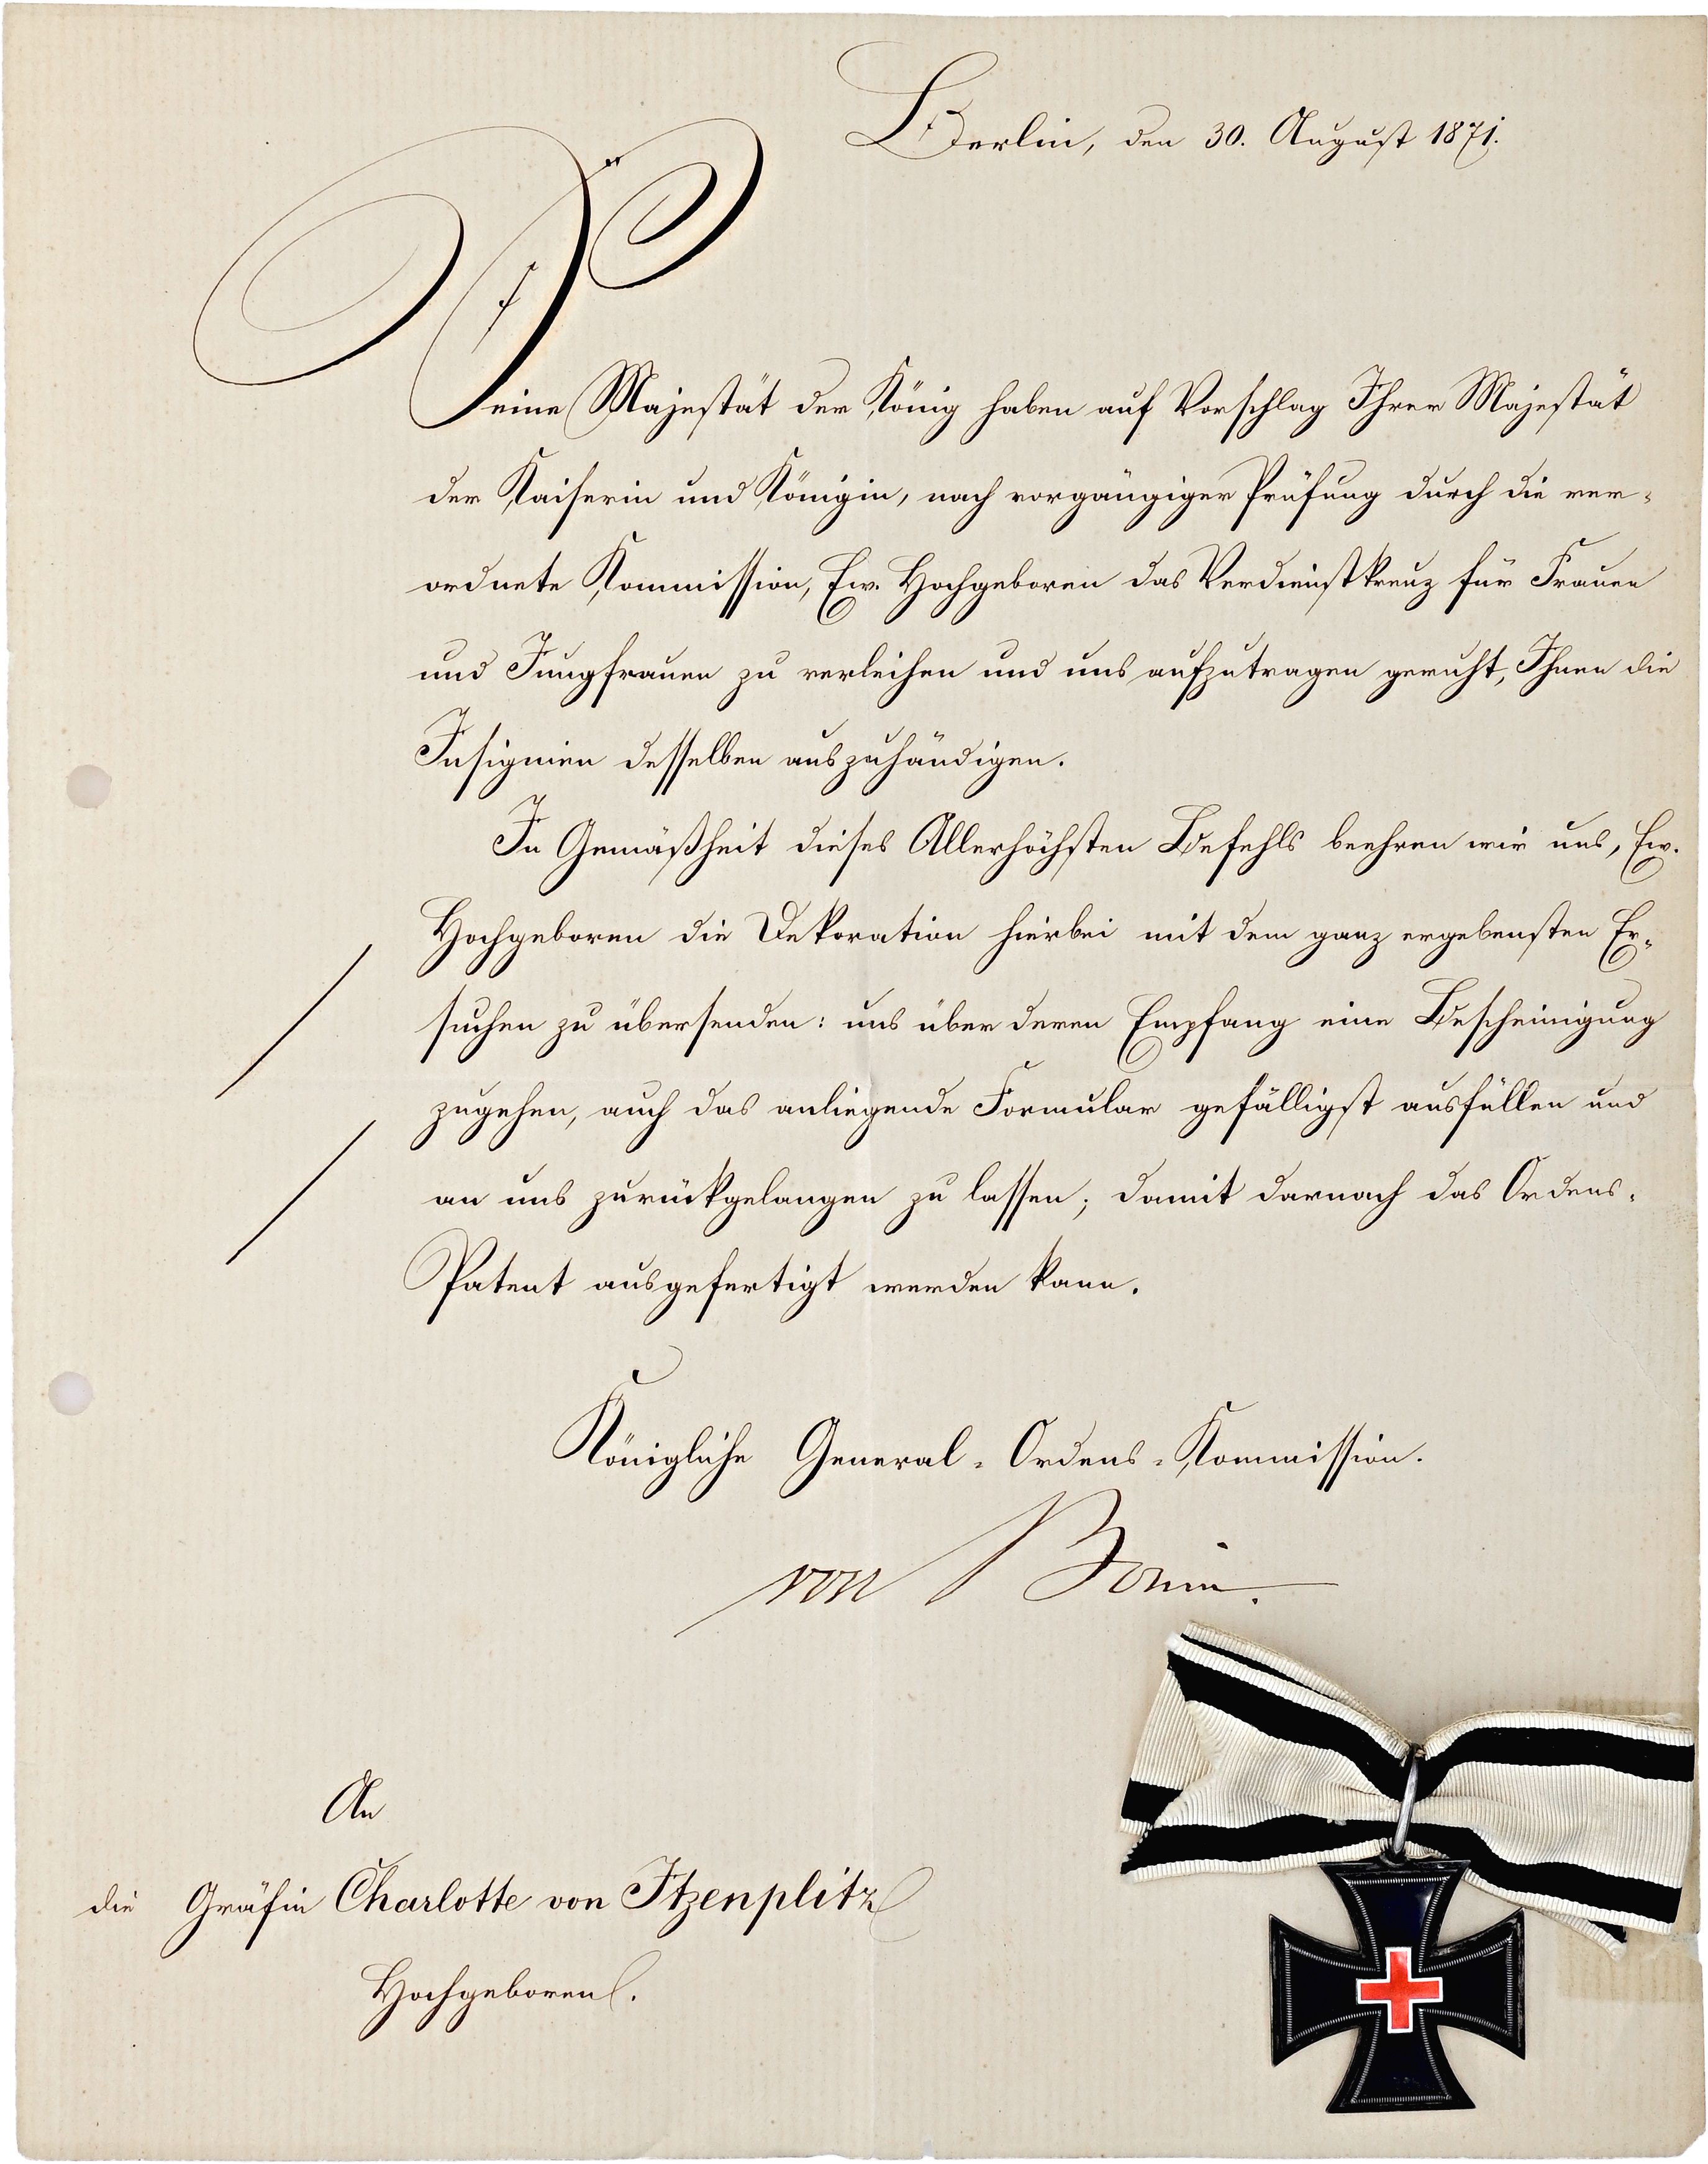 Berlin, den 30. August 1871.
Seine Majestät der König haben auf Vorschlag Ihrer Majestät
der Kaiserin und Königin, nach vorgängiger Prüfung durch die ver-
ordnete Kommission, Ew. Hochgeboren das Verdienstkreuz für Frauen
und Jungfrauen zu verleihen und uns aufzutragen geruht, Ihnen die
Insignien desselben auszuhändigen.
In Gemäßheit dieses Allerhöchsten Befehls beehren wir uns, Ew.
Hochgeboren die Dekoration hierbei mit dem ganz ergebensten Er-
suchen zu übersenden: uns über deren Empfang eine Bescheinigung
zugehen, auch das anliegende Formular gefälligst ausfüllen und
an uns zurückgelangen zu lassen; damit darnach das Ordens-
Patent ausgefertigt werden kann.
Königliche General-Ordens-Kommission.
von Bonin.
An
die Gräfin Charlotte von Itzenplitz
Hochgeboren.